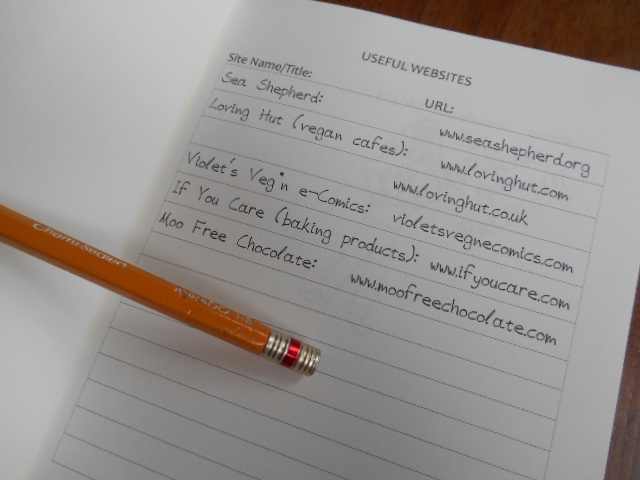 USEFUL WEBSITES
Site Name/Title: URL:
Sea Shepherd: www.seashepherd.org
Loving Hut (vegan cafes): www.lovinghut.com
www.lovinghut.co.uk
Violet's Veg*n e-Comics: violetsvegnecomics.com
If You Care (baking products): www.ifyoucare.com
Moo Free Chocolate: www.moofreechocolate.com